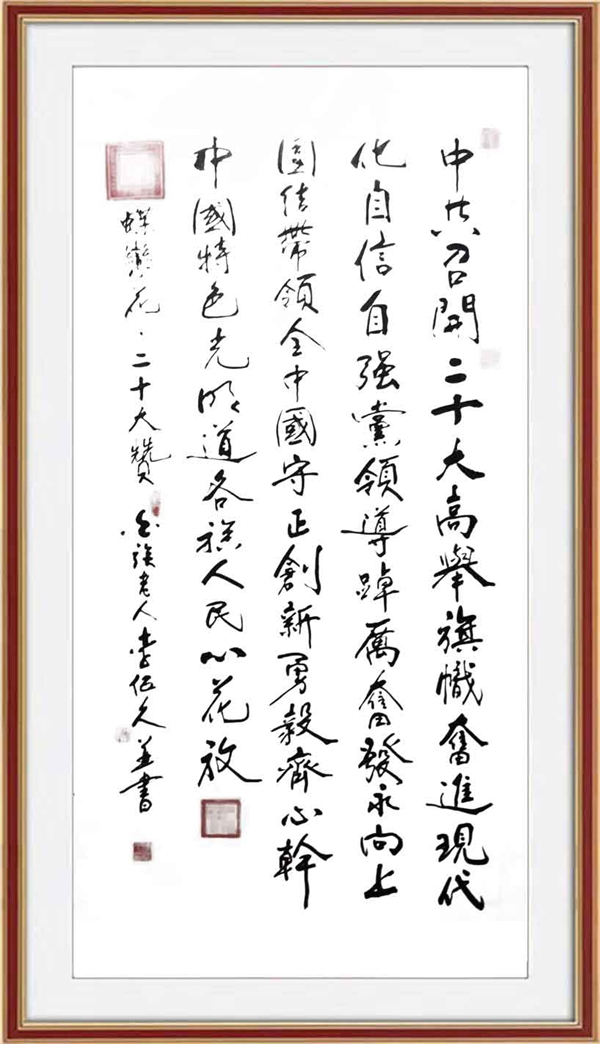 中共召開二十大高舉旗幟奮進現代
化自信自强黨領導踔厲奮發永向上
團结帶領全中國守正創新勇毅齊心幹
中國特色光明道各族人民心花放
蝶戀花·二十大贊 老人李伍久並書